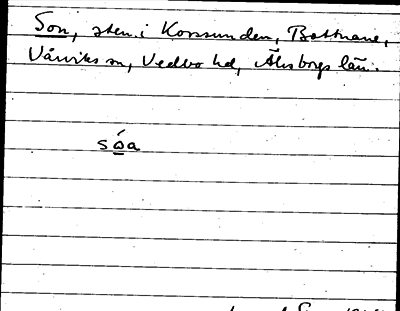 Son, sten i Korssunden, Bottnane,
Vårviks sn, Vedbo hd, Älvsborgs län.
sóa